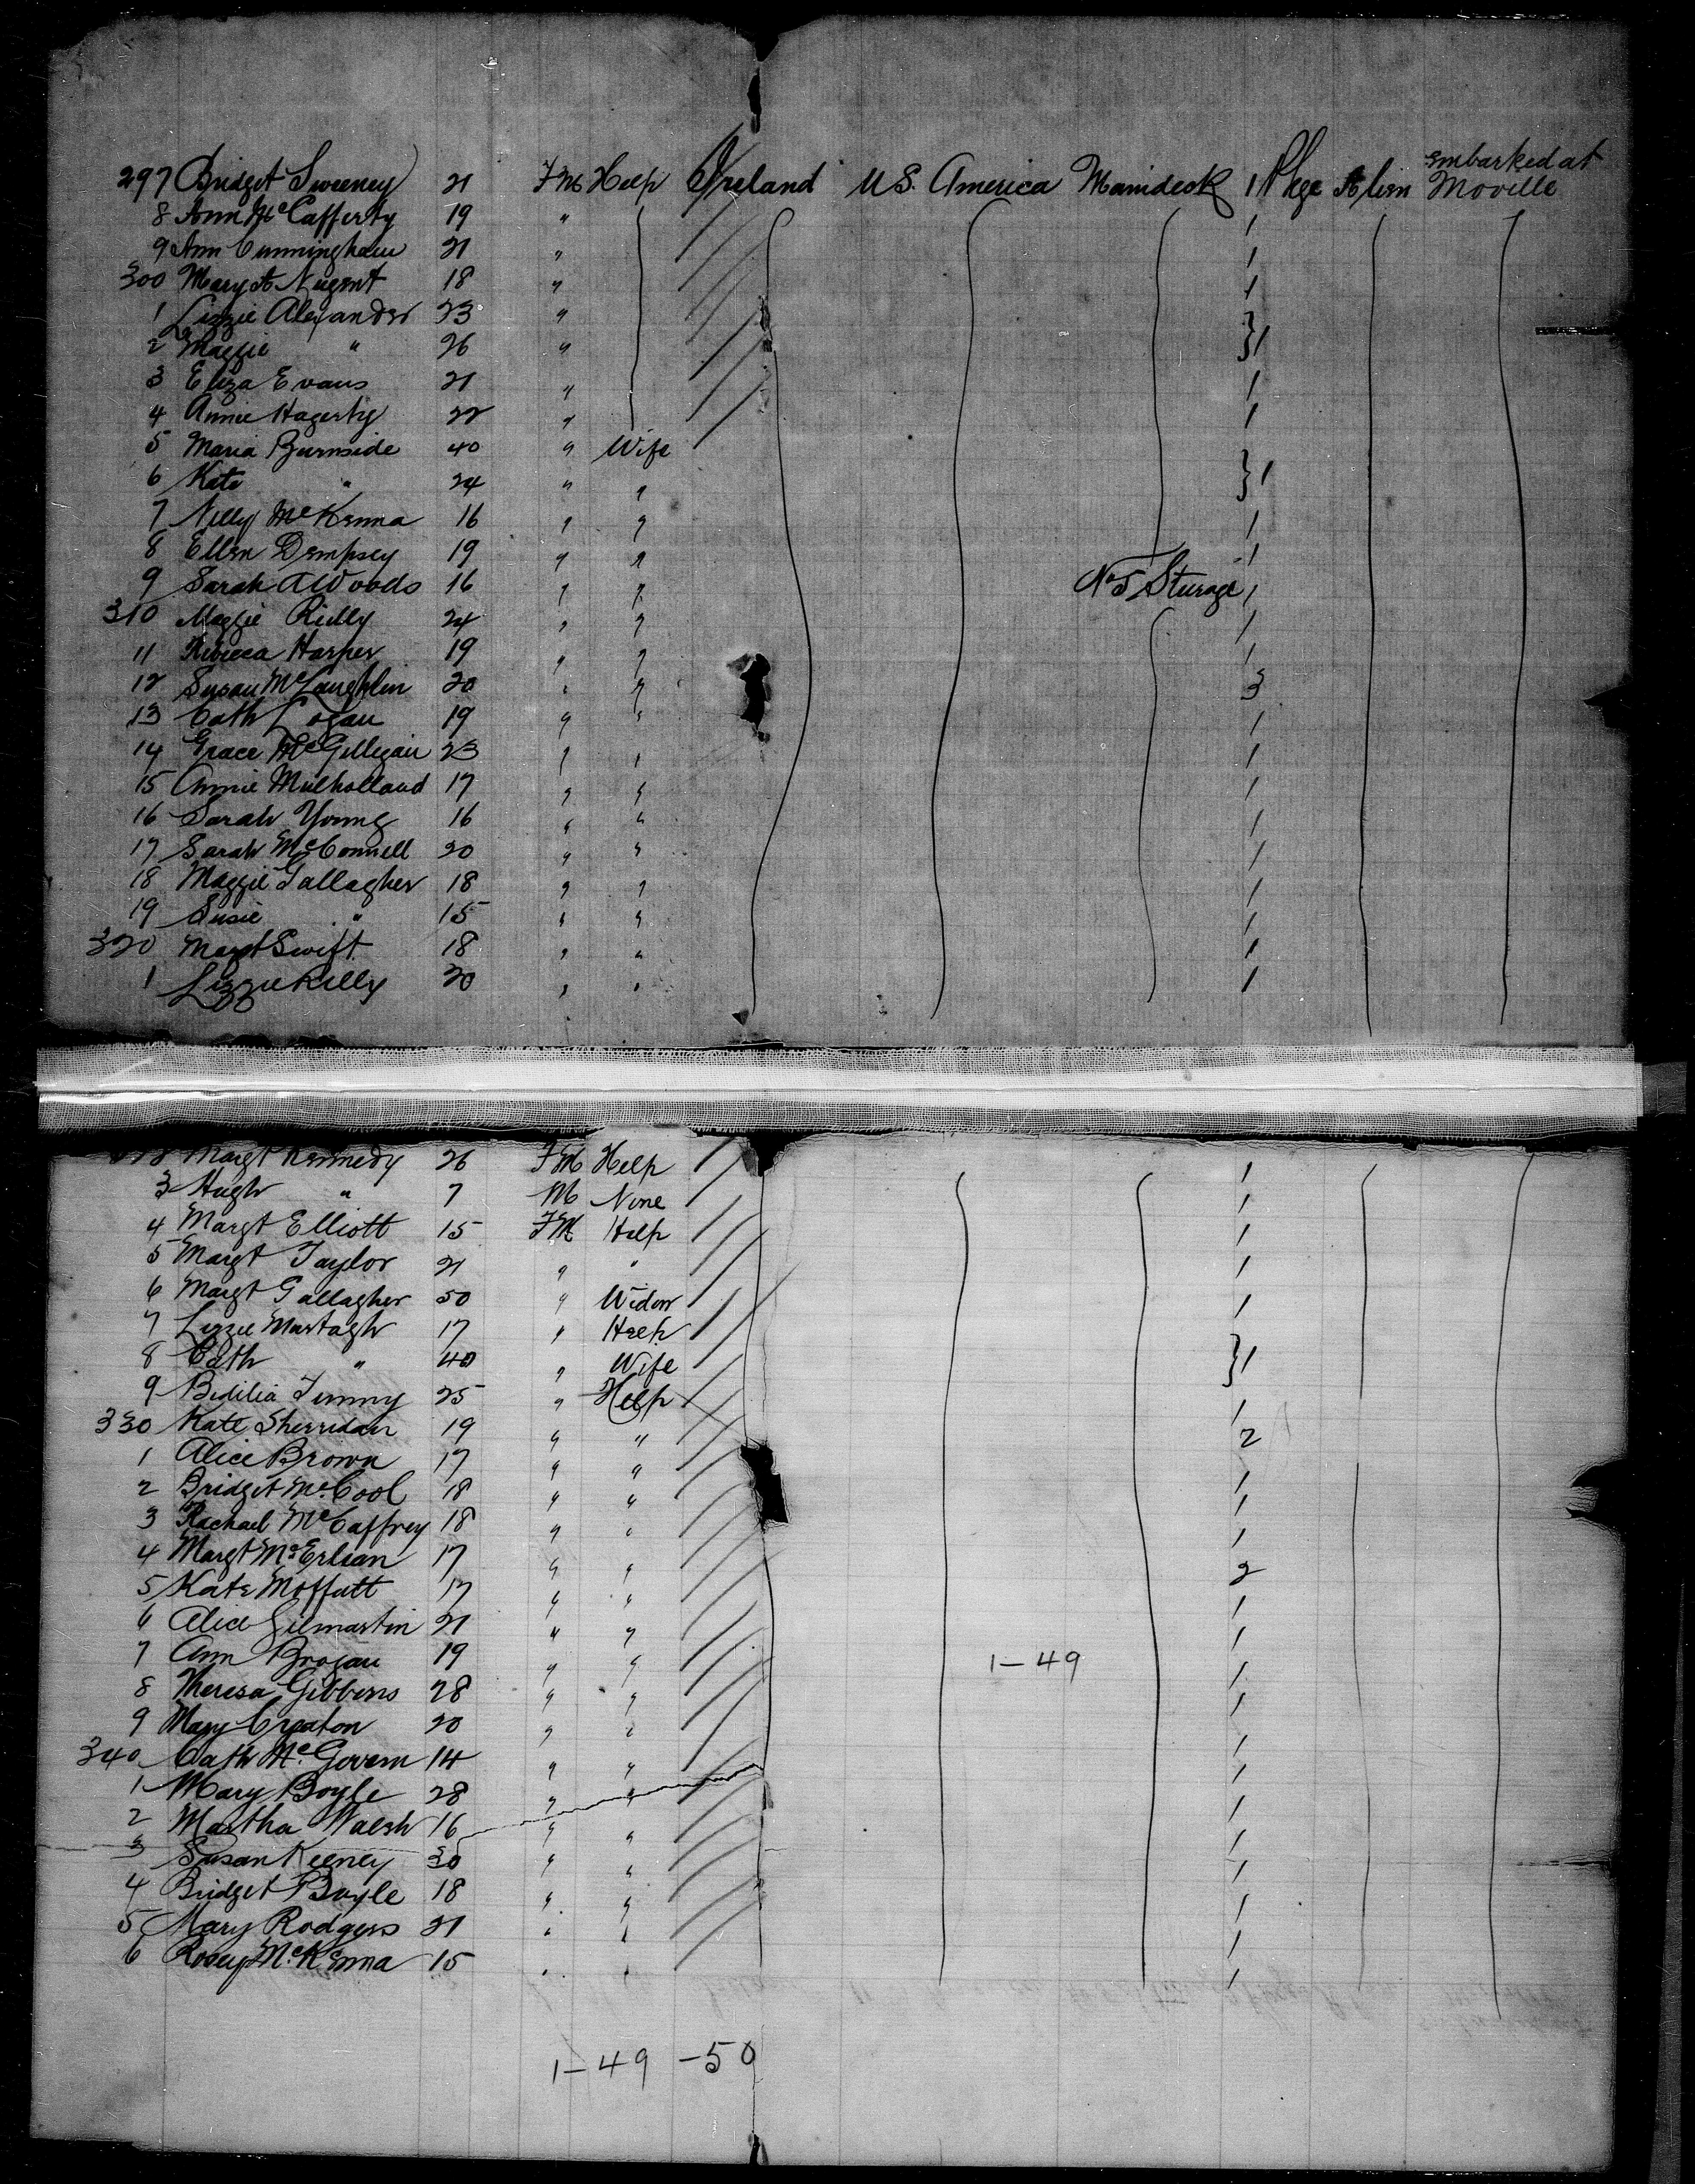 embarked at
297 Bridget Sweeney 21 FM Help Ireland U.S. America Maindeck 1 Pkge Alien Moville
8 Ann McCafferty 19 " 1
9 Ann Cunningham 21 " 1
300 Mary A Nugent 18 " 1
1 Lizzie Alexander 23 "
2 Maggie " 26 " }1
3 Eliza Evans 21 " 1
4 Annie Hagerty 22 " 1
5 Maria Burnside 40 " Wife
6 Kate " 24 " " }1
7 Nelly McKenna 16 " " 1
8 Ellen Dempsey 19 " " 1
9 Sarah A Woods 16 " " No 5 Sturage 1
310 Maggie Rielly 24 " " 1
11 Rebecca Harper 19 " " 1
12 Susan McLaughlin 20 " " 3
13 Cath Logan 19 " " 1
14 Grace McGilligan 23 " " 1
15 Annie Mulholland 17 " " 1
16 Sarah Young 16 " " 1
17 Sarah McConnell 20 " " 1
18 Maggie Gallagher 18 " " 1
19 Susie " 15 " " 1
320 Margt Swift 18 " " 1
1 Lizzie Kelly 20 " " 1
Margt Kennedy 26 FM Help 1
3 Hugh " 7 M None 1
4 Margt Elliott 15 FM Help 1
5 Margt Taylor 21 " " 1
6 Margt Gallagher 50 " Widow 1
7 Lizzie Murtagh 17 " Help
8 Cath " 40 " Wife }1
9 Bidilia Timmy 25 " Help 1
330 Kate Sherridan 19 " " 2
1 Alice Brown 17 " " 1
2 Bridget McCool 18 " " 1
3 Rachael McCaffrey 18 " " 1
4 Margt McErlean 17 " " 2
5 Kate Moffatt 17 " " 1
6 Alice Gilmartin 21 " " 1
7 Ann Brogan 19 " " 1-49 1
8 Theresa Gibbons 28 " " 1
9 Mary Creaton 20 " " 1
340 Cath McGovern 14 " " 1
1 Mary Boyle 28 " " 1
2 Martha Walsh 16 " " 1
3 Susan Keeney 30 " " 1
4 Bridget Boyle 18 " " 1
5 Mary Rodgers 21 " " 1
6 Rosey McKenna 15 " " 1
1-49-50